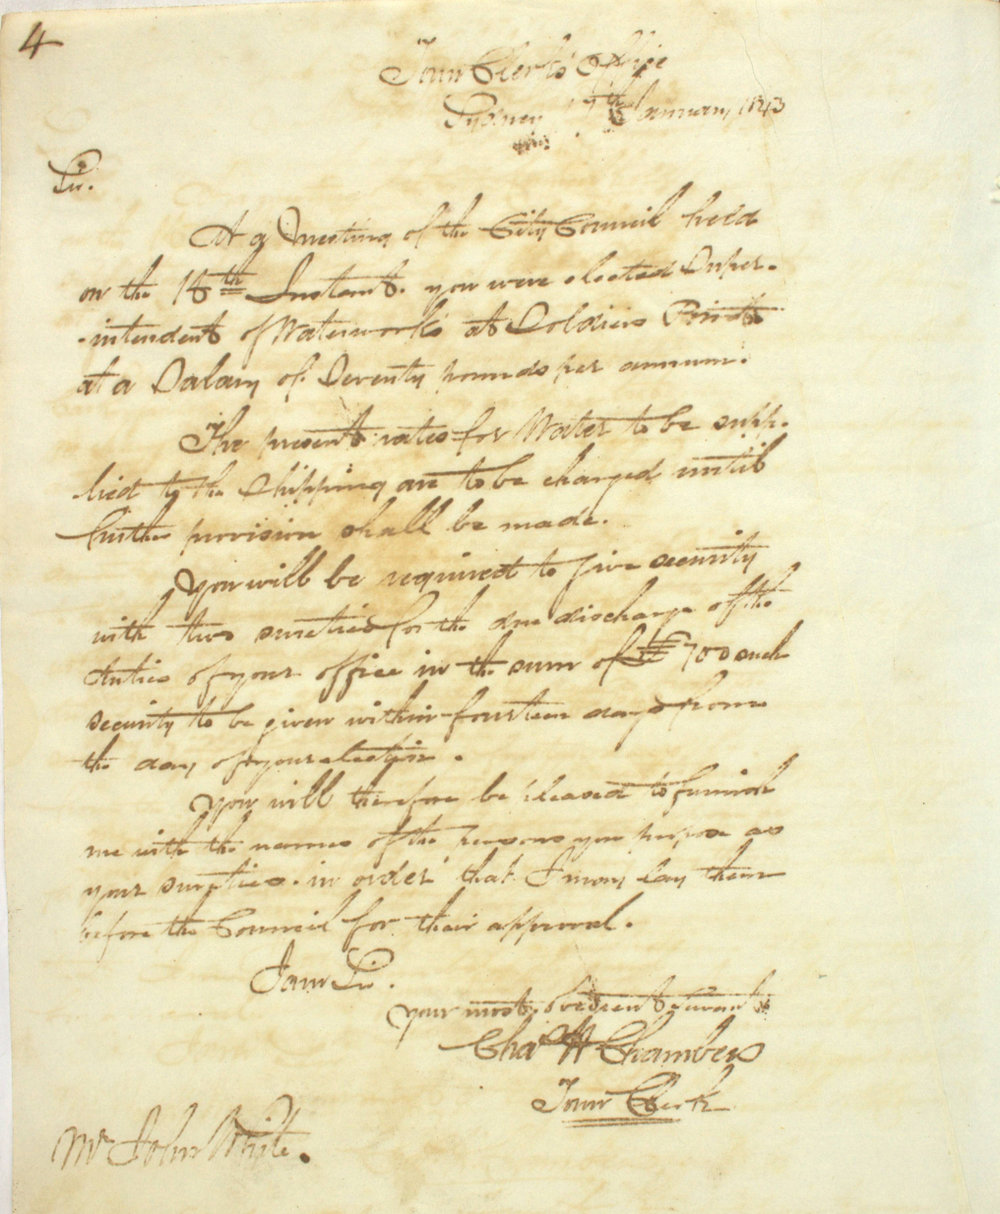 4
Town Clerk's Office
Sydney January 1843
Sir.
At a Meeting of the City Council held
on the 18th Instant. you were elected Super-
-intendent of Waterworks at Soldiers Point
at a Salary of Seventy pounds per annum.
The present rates for Water to be supp-
lied to the Shipping are to be charged until
further provision shall be made.
You will be required to give security
with two sureties for the due discharge of the
duties of your office in the sum of £700 such
security to be given within fourteen days from
the day of your election.
You will therefore be pleased to furnish
me with the names of the persons you purpose as
your sureties. in order that I may lay them
before the Council for their approval.
I am Sir.
your most obedient Servant
Chas H Chambers
Town Clerk
Mr John White.